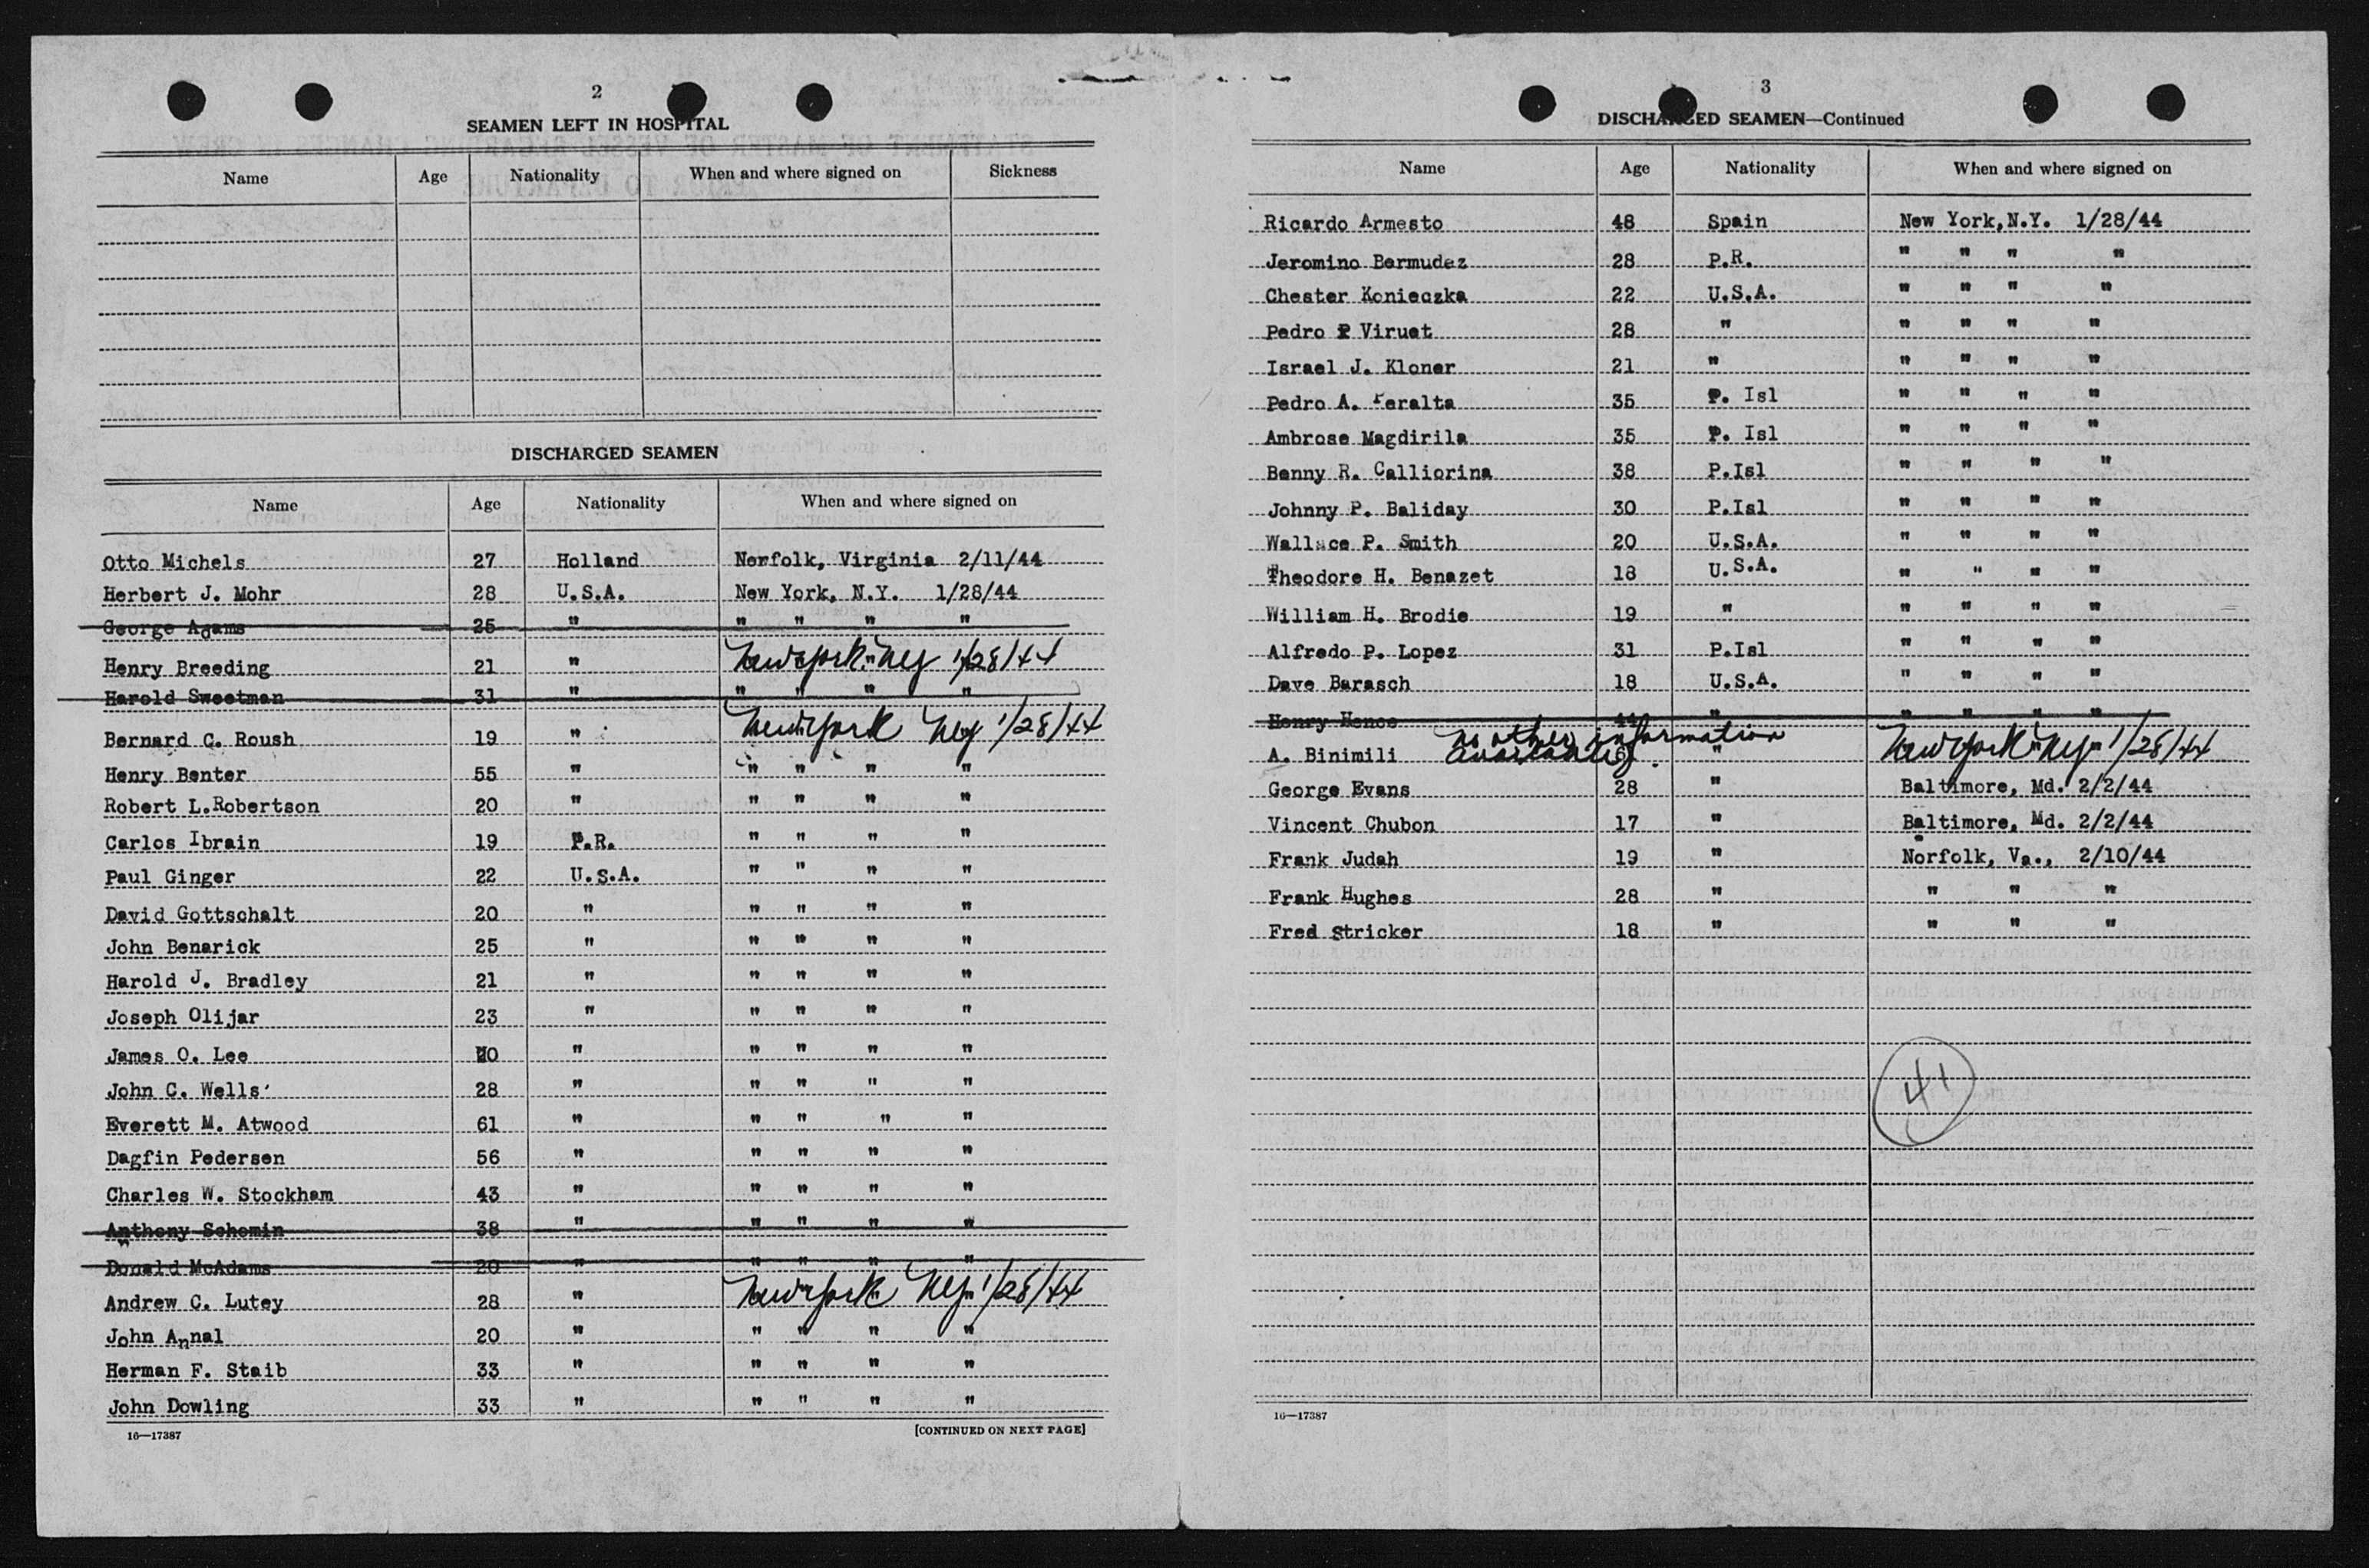 2
SEAMEN LEFT IN HOSPITAL
Name Age Nationality When and where signed on Sickness
DISCHARGED SEAMEN
Name Age Nationality When and where signed on
Otto Michels 27 Holland Norfolk, Virginia 2/11/44
Herbert J. Mohr 28 U.S.A. New York, N.Y. 1/28/44
George Adams 25 " " " " "
Henry Breeding 21 " New York NY 1/28/44
Harold Sweetman 31 " " " " "
Bernard C. Roush 19 " New York NY 1/28/44
Henry Benter 55 " " " " "
Robert L.Robertson 20 " " " " "
Carlos Ibrain 19 P.R. " " " "
Paul Ginger 22 U.S.A. " " " "
David Gottschalt 20 " " " " "
John Benarick 25 " " " " "
Harold J. Bradley 21 " " " " "
Joseph Olijar 23 " " " " "
James O. Lee " " " " "
John C. Wells 28 " " " " "
Everett M. Atwood 61 " " " " "
Dagfin Pedersen 56 " " " " "
Charles W. Stockham 43 " " " " "
Anthony Schomin 38 " " " " "
Donald McAdams 20 " " " " "
Andrew C. Lutey 28 " New York NY 1/28/44
John Annal 20 " " " " "
Herman F. Staib 33 " " " " "
John Dowling 33 " " " " "
16—17387
[CONTINUED ON NEXT PAGE]
3
DISCHARGED SEAMEN—Continued
Name Age Nationality When and where signed on
Ricardo Armesto 48 Spain New York,N.Y. 1/28/44
Jeromino Bermudez 28 P.R. " " " "
Chester Konieczka 22 U.S.A. " " " "
Pedro P Viruet 28 " " " " "
Israel J. Kloner 21 " " " " "
Pedro A. Peralta 35 P. Isl " " " "
Ambrose Magdirila 35 P. Isl " " " "
Benny R. Calliorina 38 P.Isl " " " "
Johnny P. Baliday 30 P.Isl " " " "
Wallace P. Smith 20 U.S.A. " " " "
Theodore H. Benazet 18 U.S.A. " " " "
William H. Brodie 19 " " " " "
Alfredo P. Lopez 31 P.Isl " " " "
Dave Barasch 18 U.S.A. " " " "
Henry Hence 44 " " " " "
no other information
A. Binimili available. " New York NY 1/28/44
George Evans 28 " Baltimore, Md. 2/2/44
Vincent Chubon 17 " Baltimore, Md. 2/2/44
Frank Judah 19 " Norfolk, Va., 2/10/44
Frank Hughes 28 " " " "
Fred Stricker 18 " " " "
41
16—17387